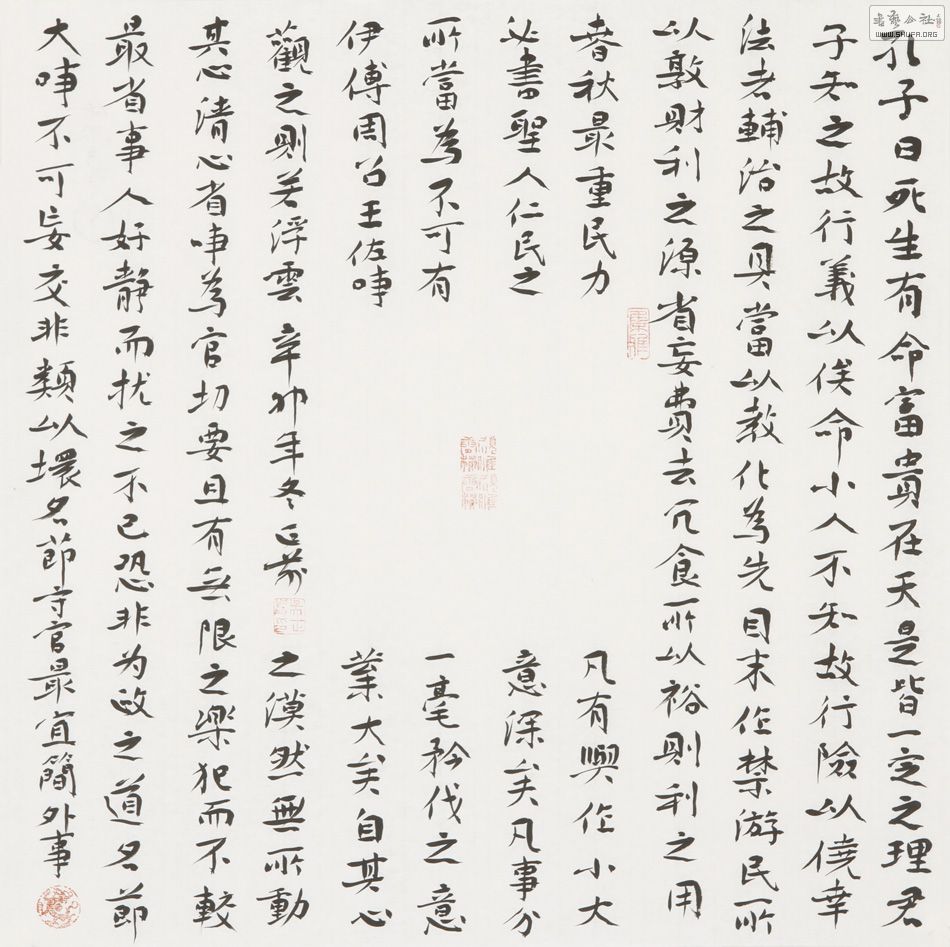 書藝公社
WWW.SHUFA.ORG
孔子曰死生有命富貴在天是皆一定之理君
子知之故行義以俟命小人不知故行險以僥幸
法者輔治之具當以教化為先目末作禁游民所
以敦財利之源省妄費去冗食所以裕財利之用
春秋最重民力 凡有興作小大
必書聖人仁民之 意深矣凡事分
所當為不可有 一毫矜伐之意
伊傅周召王佐事 業大矣自其心
觀之則若浮雲 辛卯年冬正 之漠然無所動
其心清心省事為官切要且有無限之樂犯而不較
最省事人好靜而扰之不已恐非为政之道名節
大事不可妄交非類以壞名節守官最宜簡外事